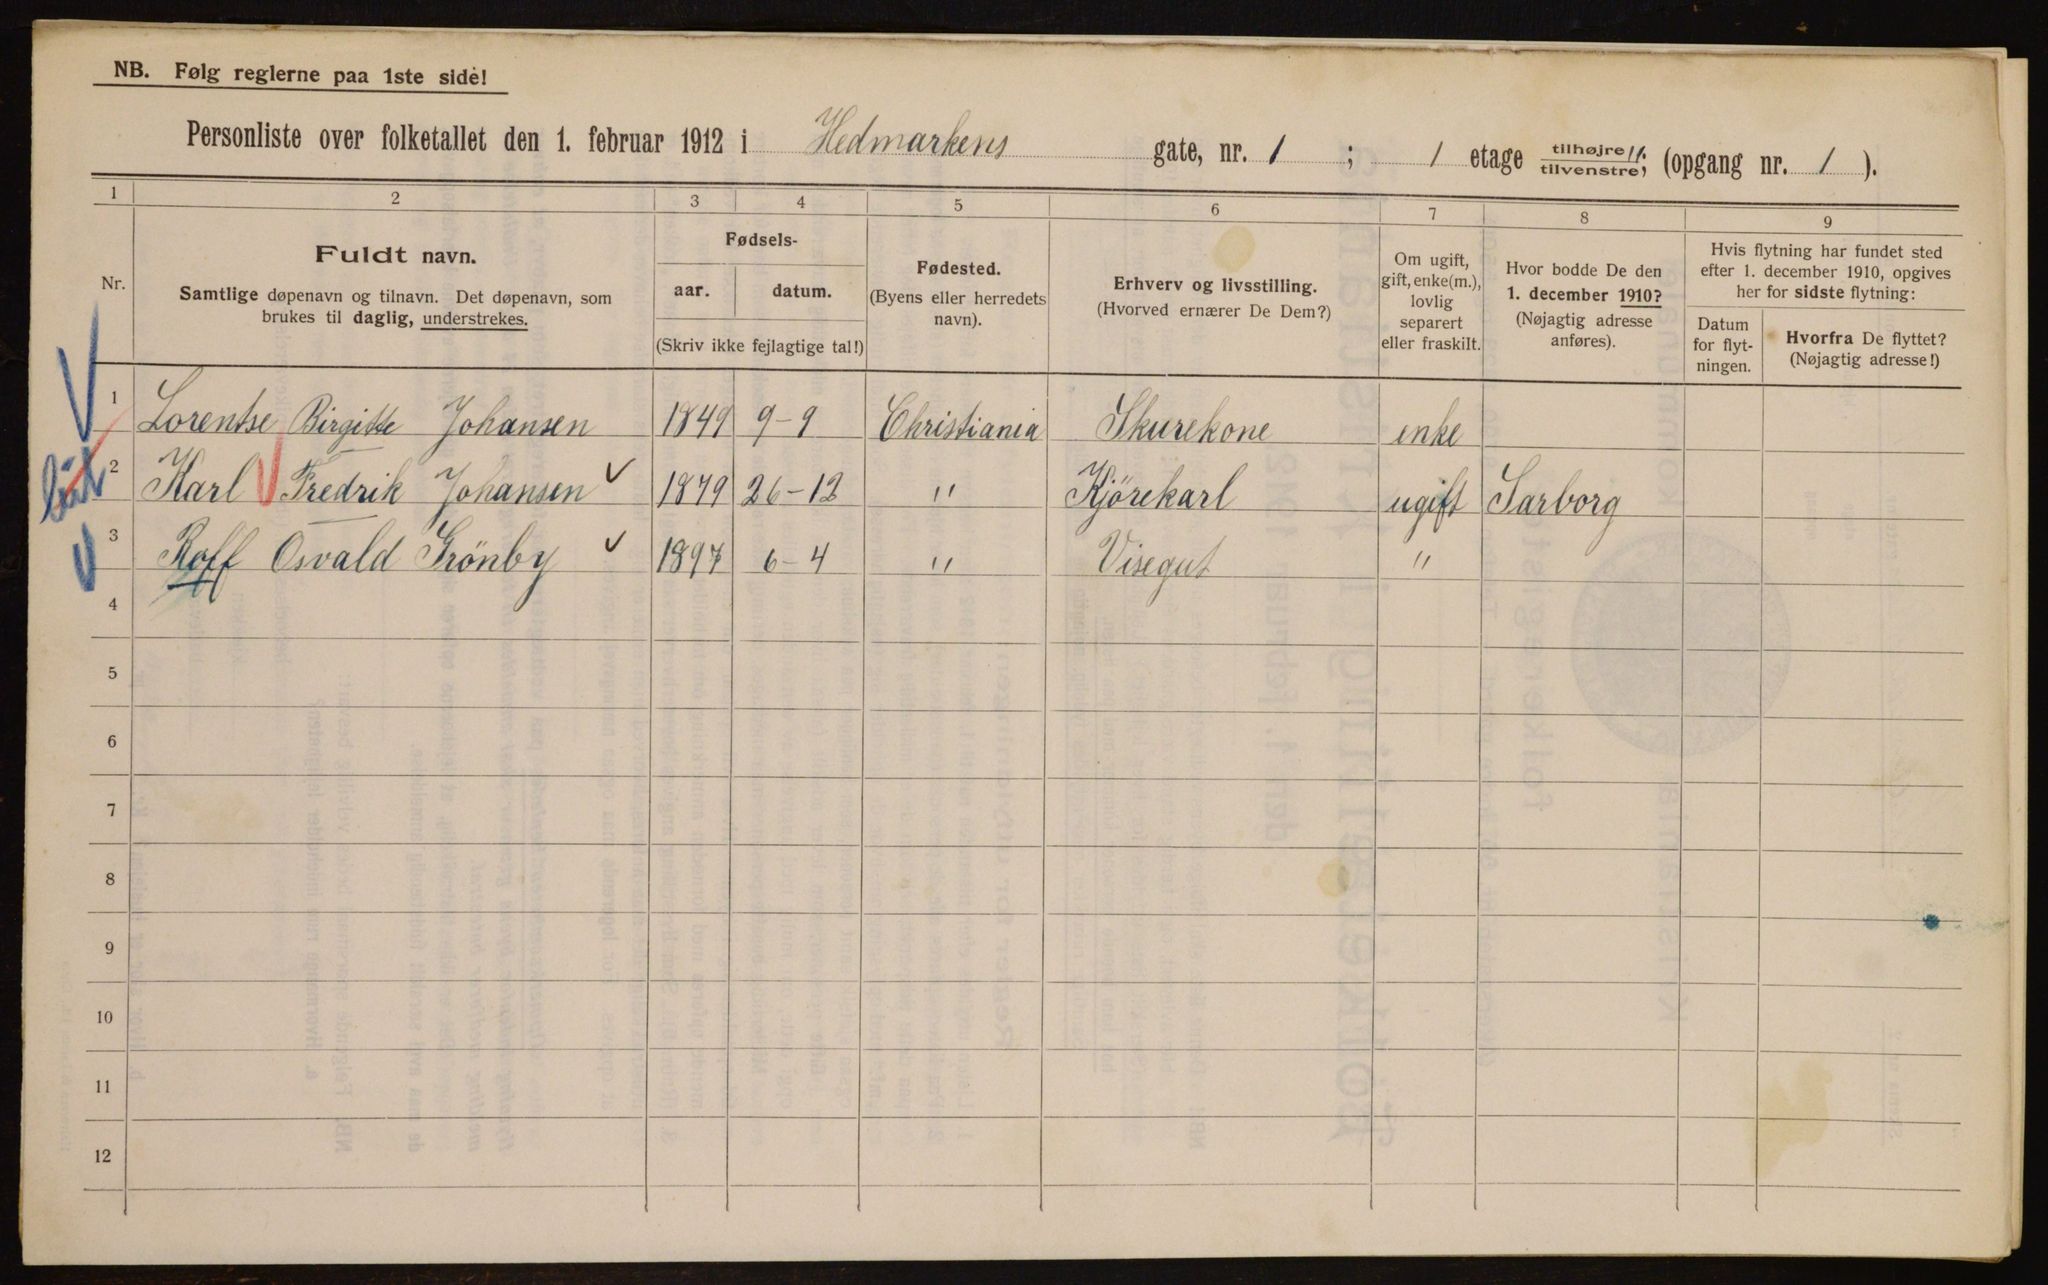 NB. Følg reglerne paa 1ste side!
Personliste over folketallet den 1. februar 1912 i Hedmarkens gate, nr. 1 ; 1 etage tilhøjre 11 tilvenstre; (opgang nr. 1 ).
1 2 3 4 5 6 7 8 9
Nr.
Fuldt navn.
Samtlige døpenavn og tilnavn. Det døpenavn, som
brukes til daglig, understrekes.
Fødsels-
aar. datum.
(Skriv ikke fejlagtige tal!)
Fødested.
(Byens eller herredets
navn).
Erhverv og livsstilling.
(Hvorved ernærer De Dem?)
Om ugift,
gift, enke(m.),
lovlig
separert
eller fraskilt.
Hvor bodde De den
1. december 1910?
(Nøjagtig adresse
anføres).
Hvis flytning har fundet sted
efter 1. december 1910, opgives
her for sidste flytning:
Datum
for flyt-
ningen.
Hvorfra De flyttet?
(Nøjagtig adresse!)
1 Lorentse Birgitte Johansen 1849 9-9 Christiania Skurekone enke
2 Karl Fredrik Johansen 1879 26-12 " Kjörekarl ugift Sarborg
3 Roff Osvald Grönby 1897 6-4 " Visegut "
4
5
6
7
8
9
10
11
12